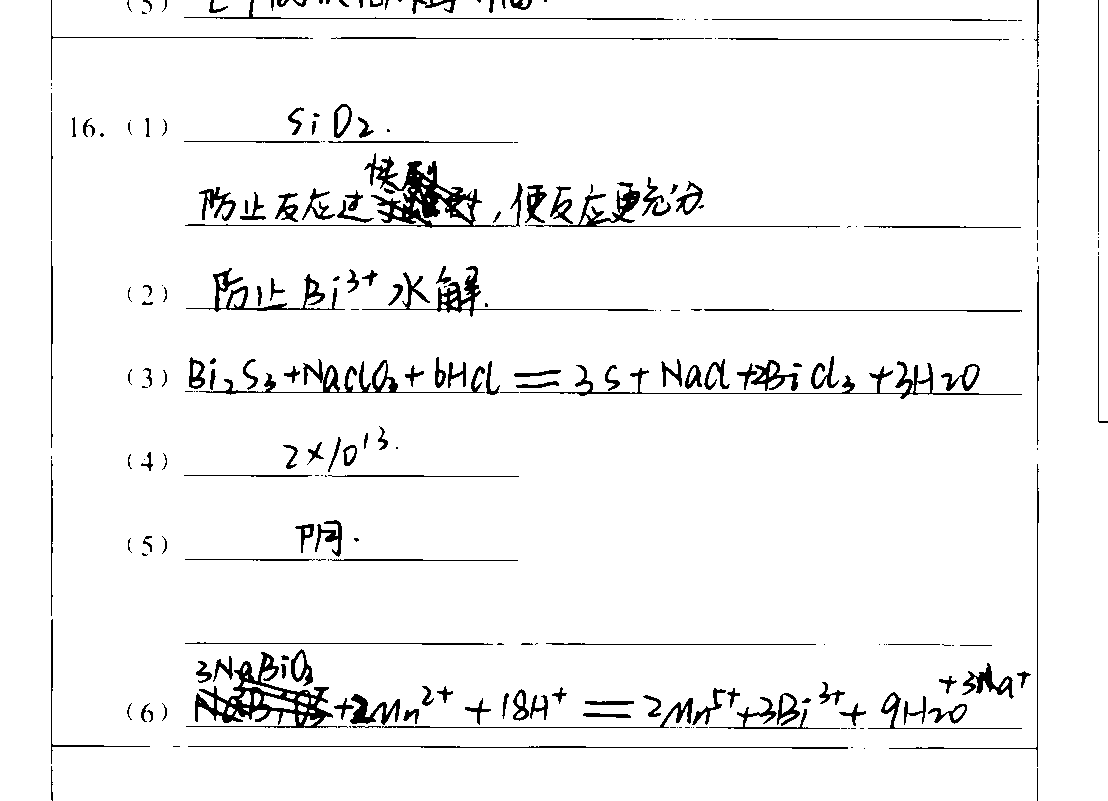 (5)
16. (1) SiO2.
防止反应过快剧烈,使反应更充分.
(2) 防止Bi³⁺水解.
(3) Bi₂S₃+NaClO₃+6HCl══3S+NaCl+2BiCl₃+3H₂O
(4) 2×10¹³.
(5) 阴.
3NaBiO₃
(6) +2Mn²⁺+18H⁺══2Mn⁵⁺+3Bi³⁺+9H₂O+3Na⁺